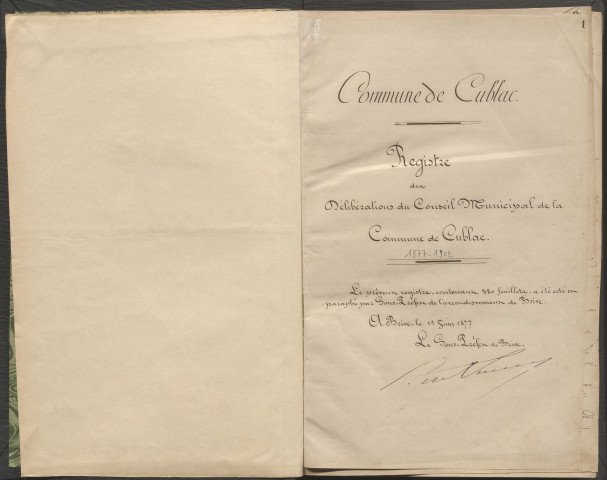 1
Commune de Cublac.
Registre
des
Délibérations du Conseil Municipal de la
Commune de Cublac.
1877-1902
Le présent registre, contenant feuillets, a été coté et
paraphé par Sous-Préfet de l'arrondissement de Brive.
A Brive, le 13 Juin 1877
Le Sous-Préfet de Brive,